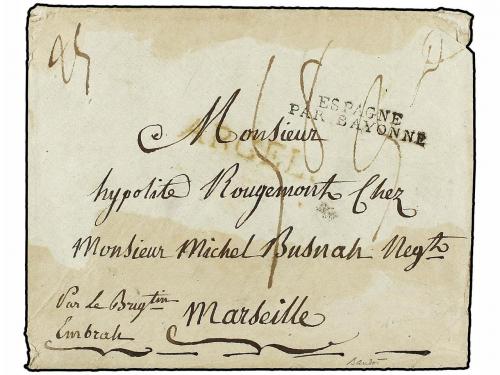 ESPAGNE
PAR BAYONNE
ARGEL
Monsieur
hypolite Rougemont Chez
Monsieur Michel Busnah Negt.
Par le Brigtin
Embrah
Marseille